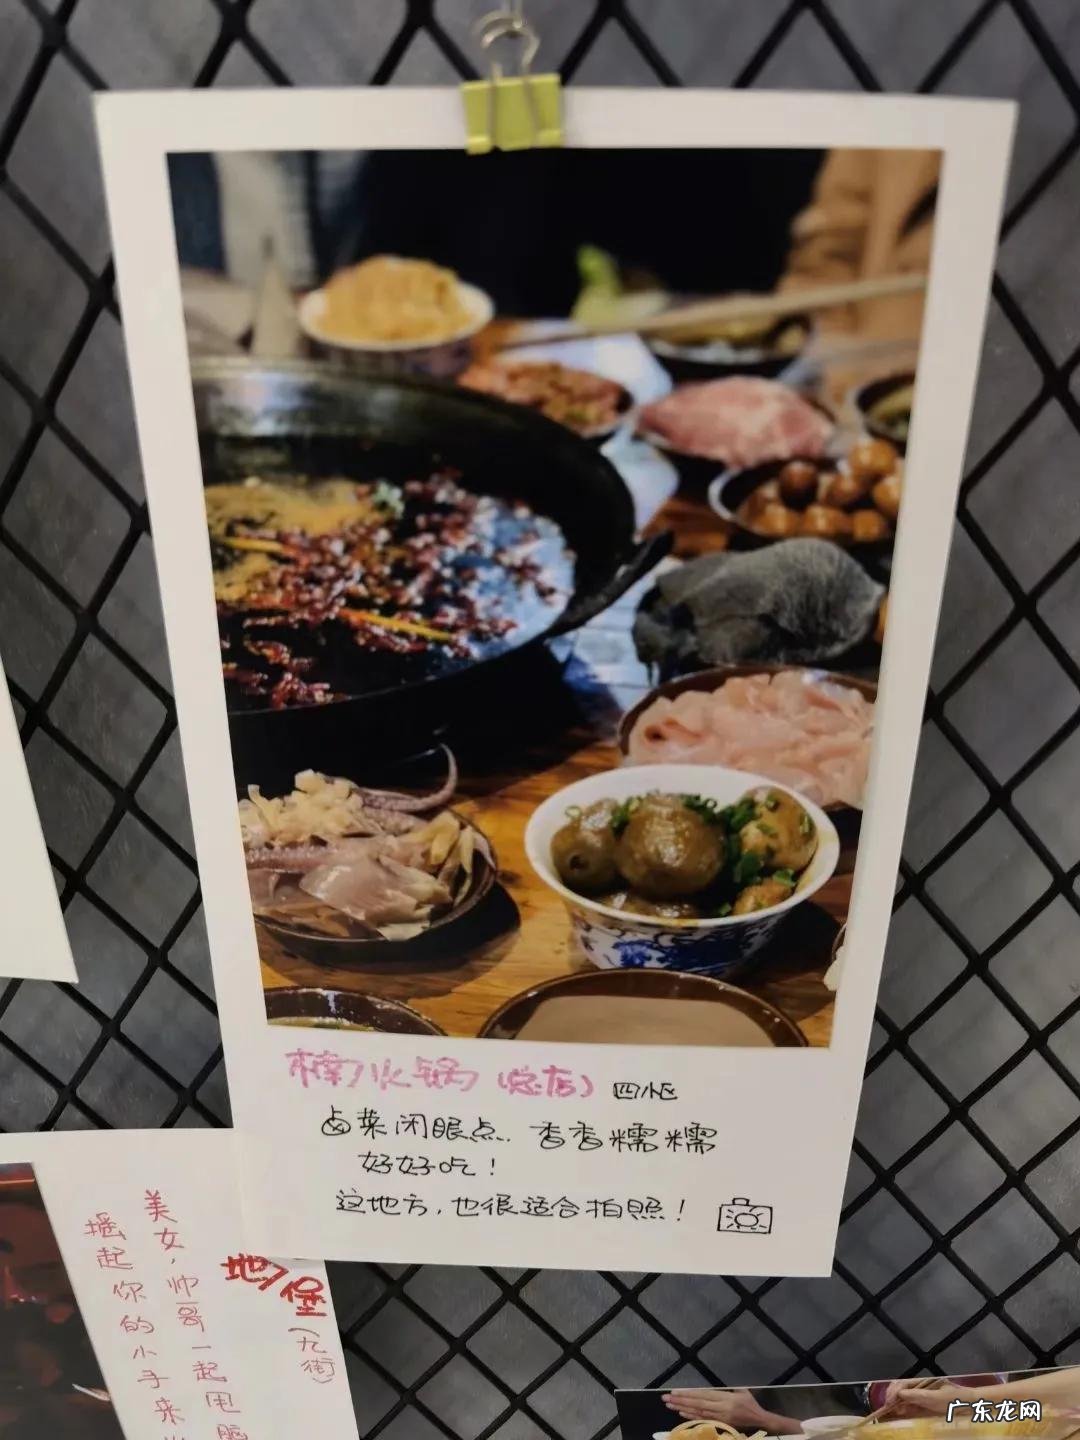 楠火锅(总店) 四小区
卤菜闭眼点. 香香糯糯
好好吃!
这地方,也很适合拍照!
地堡
(九街)
美女,帅哥一起甩
摇起你的小手来
广东龙网